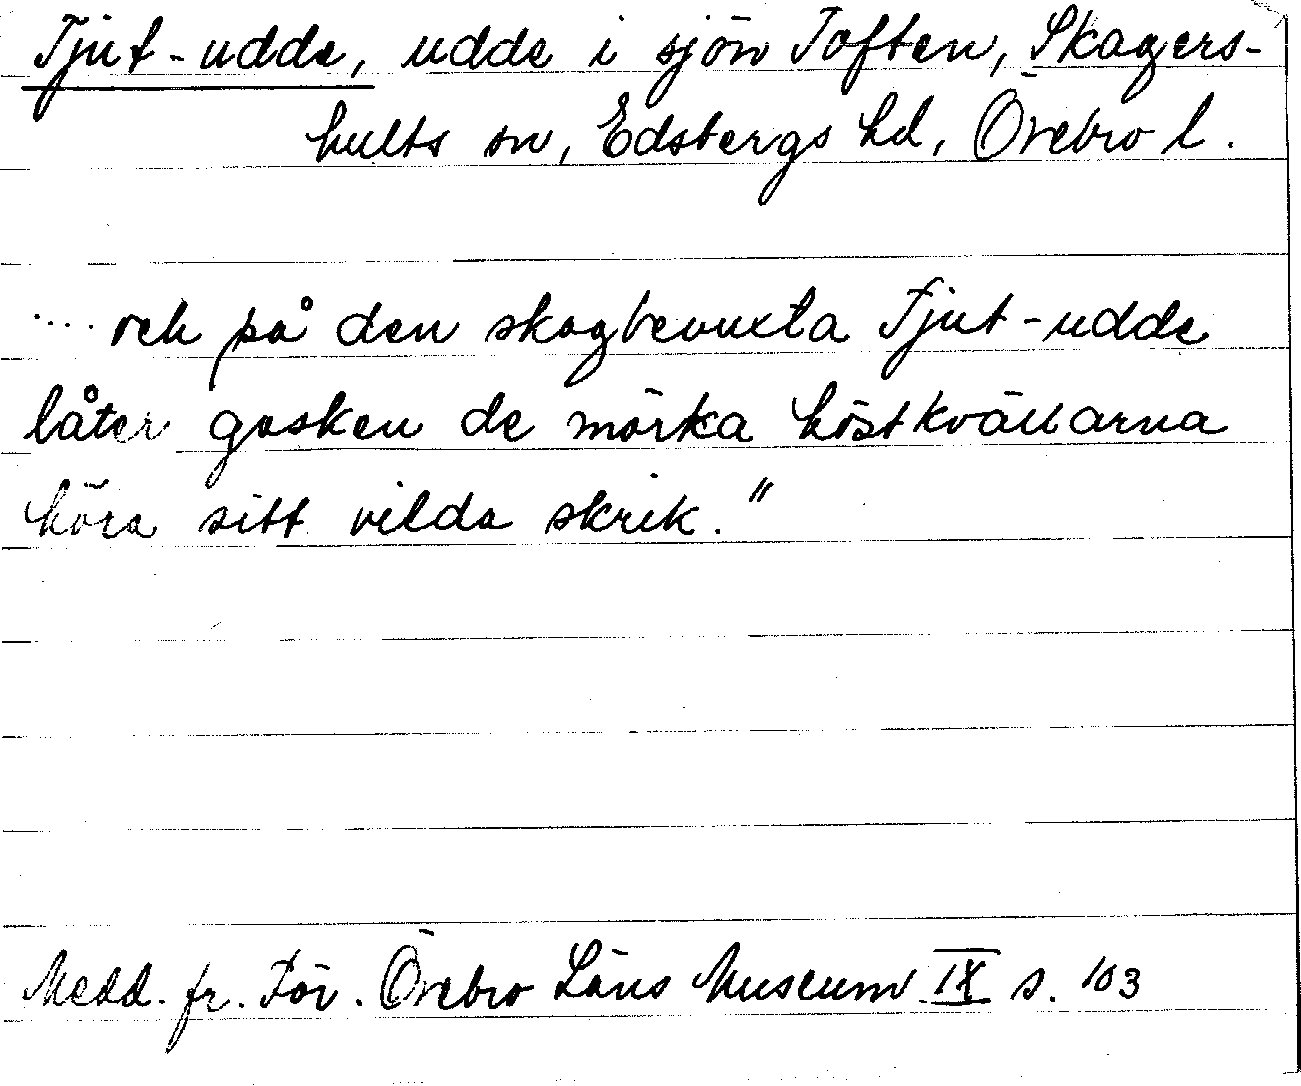 Tjut-udde, udde i sjön Toften, Skagers-
hults sn, Edsbergs hd, Örebro l.
.... och på den skogbevuxta Tjut-udde
låter gasken de mörka höstkvällarna
höra sitt vilda skrik."
Medd. fr. För. Örebro Läns Museum IX s. 103